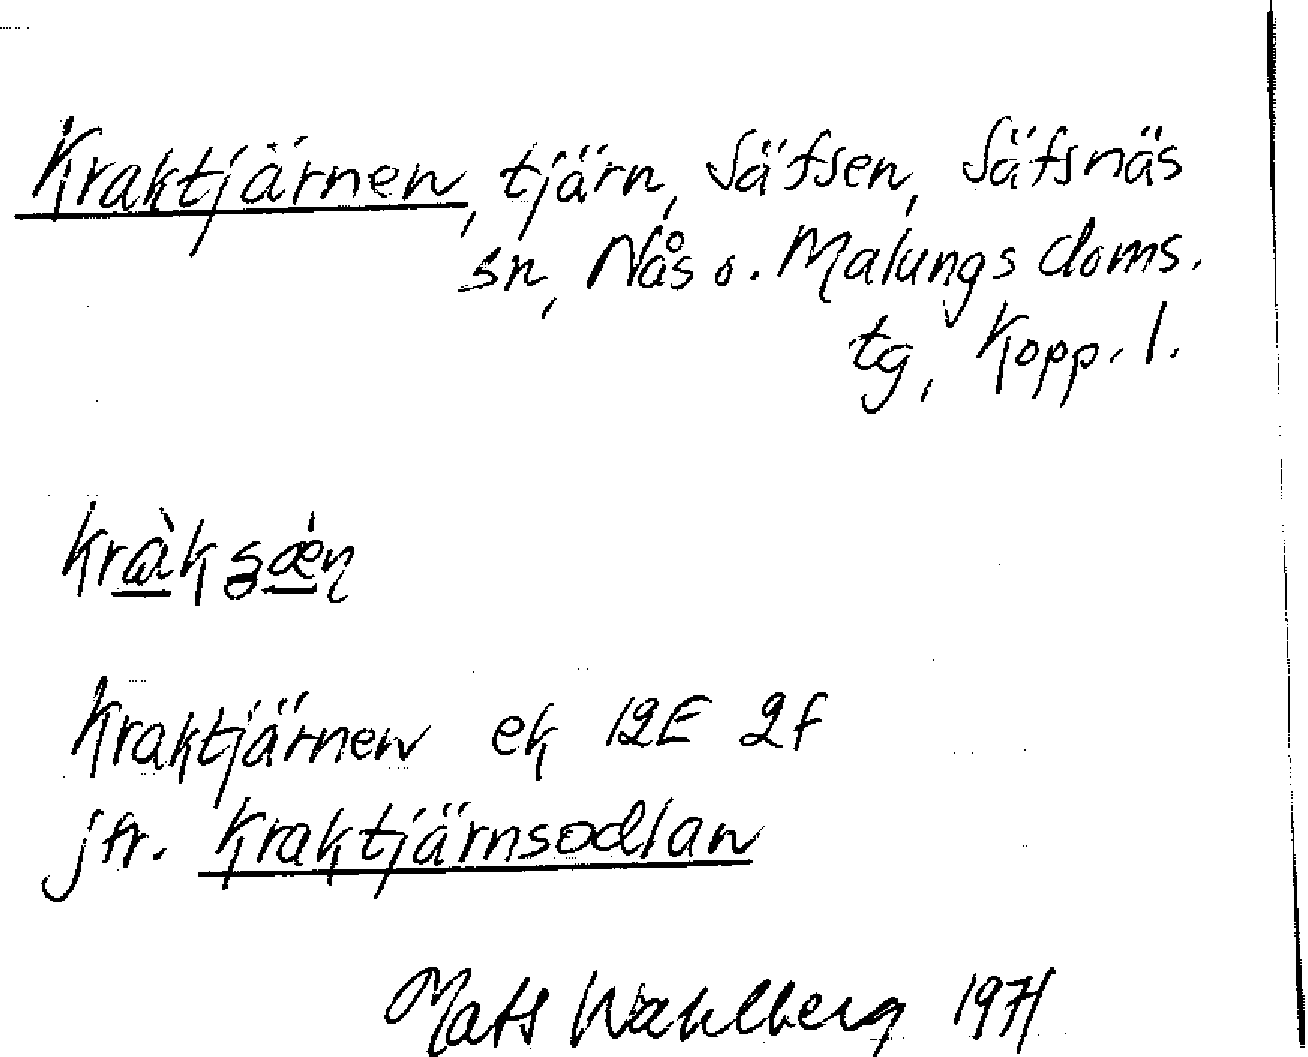 Kraktjärnen, tjärn, Säfsen, Säfsnäs
sn, Nås o. Malungs doms.
tg, Kopp. l.
Kraktjärnen ek 12E 2f
jfr. Kraktjärnsodlan
Mats Wahlberg 1971